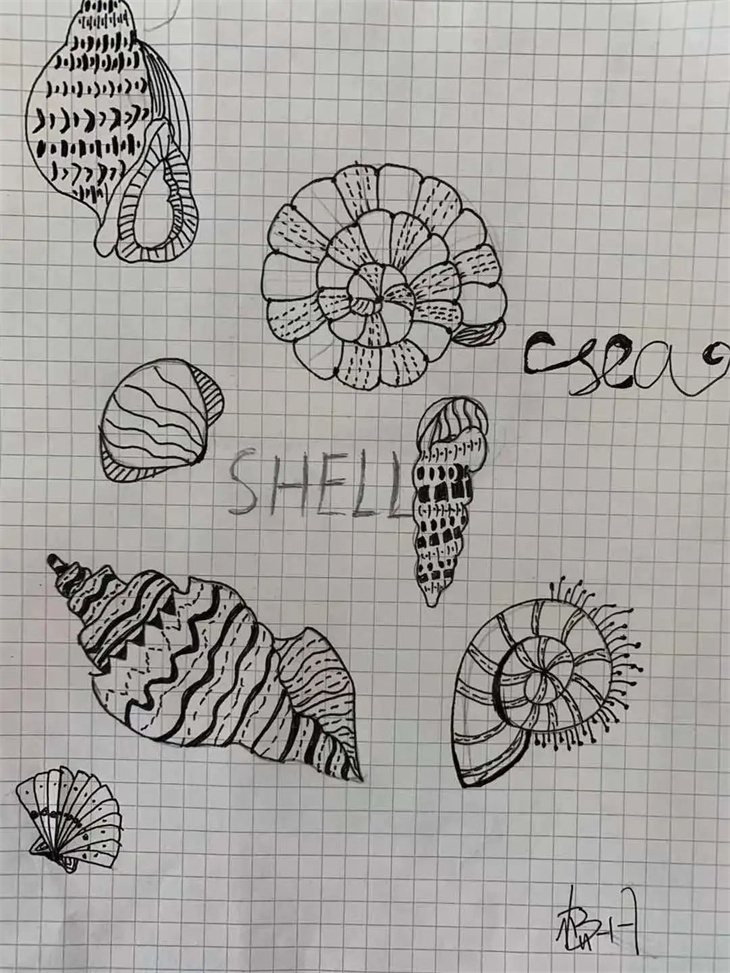 sea
SHELL